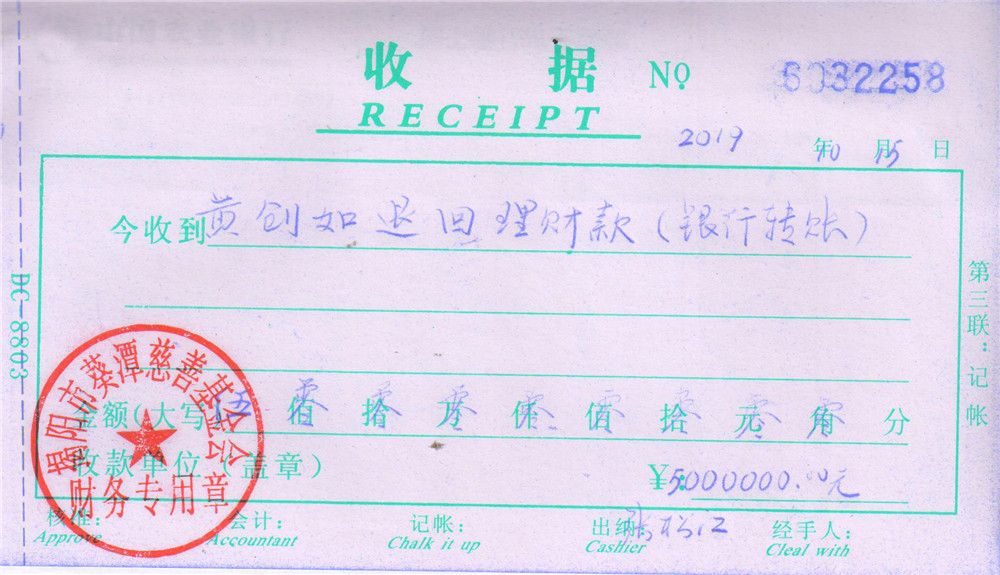 收 据 No 6032258
RECEIPT
2019 年10 月15 日
今收到 黄创如退回理财款(银行转账)
金额(大写)伍 佰 零 拾 零 万 零 仟 零 佰 零 拾 零 元 零 角 零 分
收款单位(盖章)
¥:5000000.00元
核准: 会计: 记帐: 出纳: 经手人:
Approve Accountant Chalk it up Cashier Cleal with
DC-8803
第三联:记帐
揭阳市葵潭慈善基金会
财务专用章